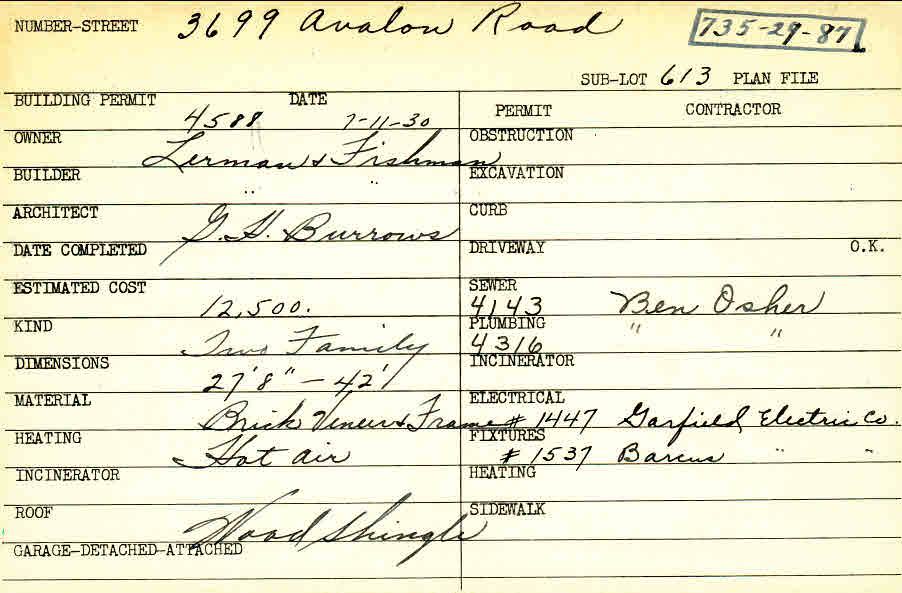 NUMBER-STREET 3699 Avalon Road 735-29-87
SUB-LOT 613 PLAN FILE
BUILDING PERMIT 4588 DATE 7-11-30
PERMIT CONTRACTOR
OWNER Lerman & Fishman
OBSTRUCTION
BUILDER " "
EXCAVATION
ARCHITECT G. H. Burrows
CURB
DATE COMPLETED
DRIVEWAY O.K.
ESTIMATED COST 12,500.
SEWER 4143 Ben Osher
KIND Two Family
PLUMBING 4316 " "
DIMENSIONS 27'8" - 42'
INCINERATOR
MATERIAL Brick Veneer & Frame
ELECTRICAL # 1447 Garfield Electric Co.
HEATING Hot air
FIXTURES # 1537 Barcus " "
INCINERATOR
HEATING
ROOF Wood Shingle
SIDEWALK
GARAGE-DETACHED-ATTACHED